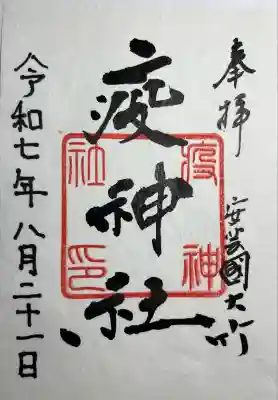 奉拝
安芸國大竹
疫神社
疫神社印
令和七年八月二十一日